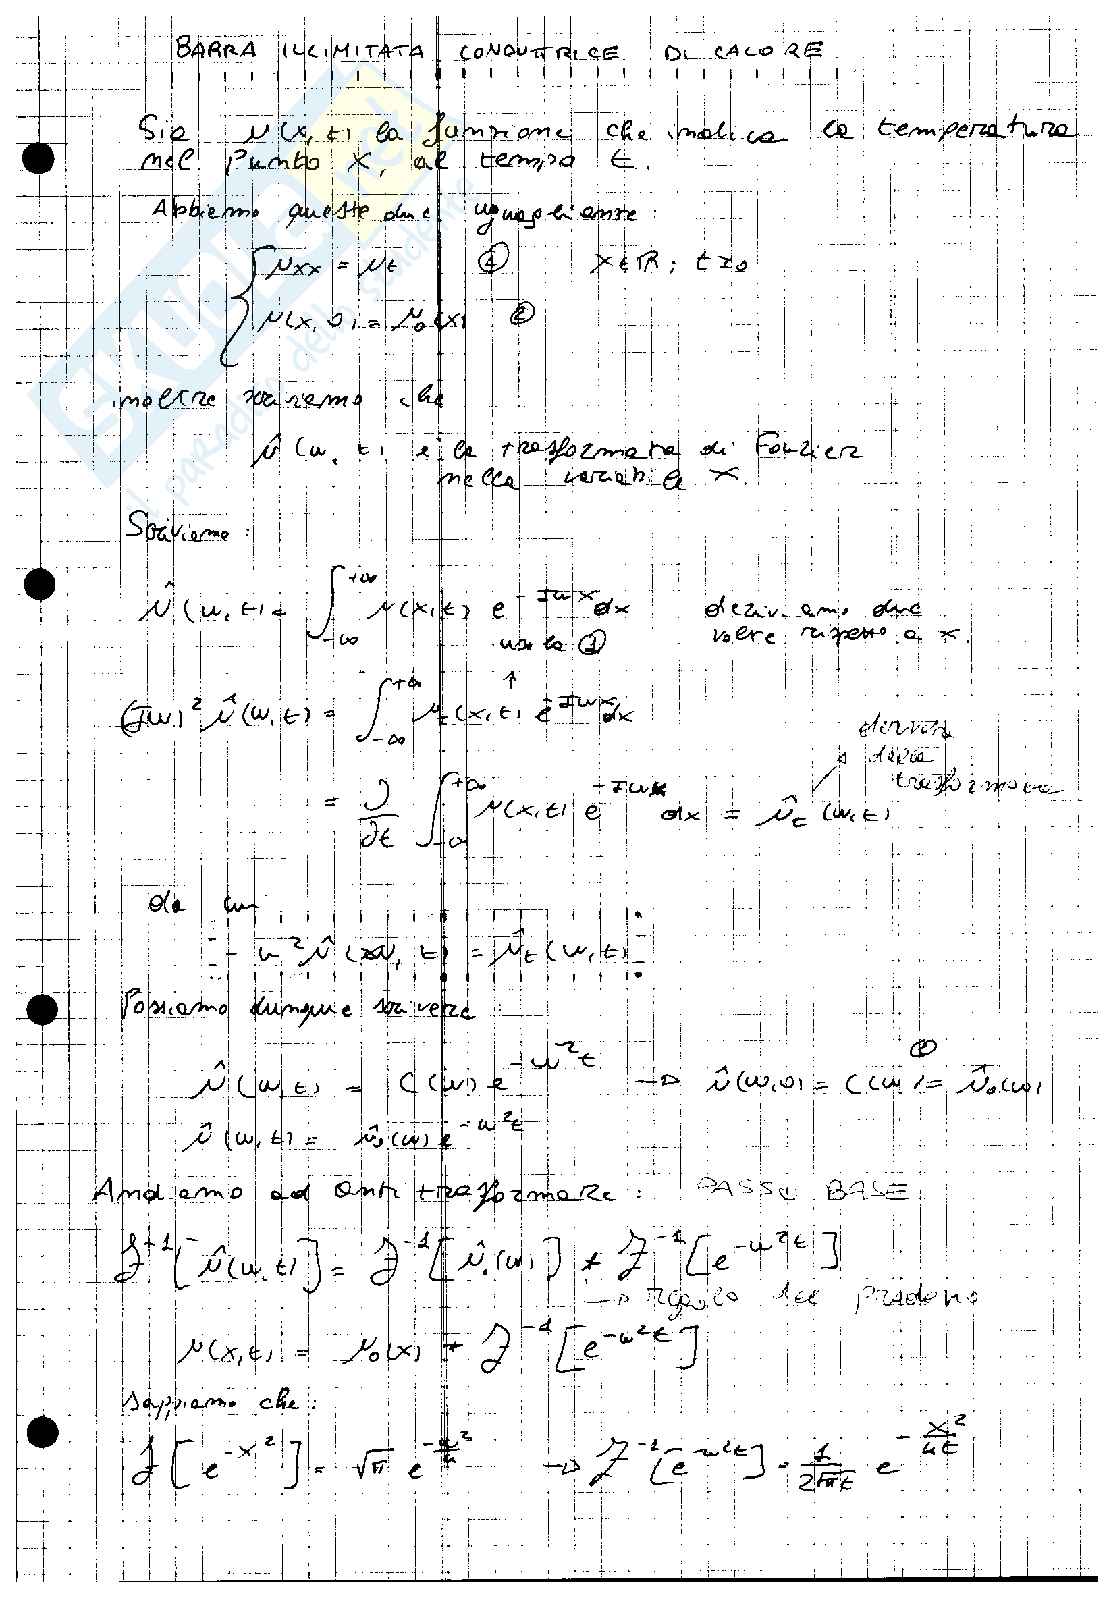 BARRA ILLIMITATA CONDUTTRICE DI CALORE
Sia u(x,t) la funzione che indica la temperatura
nel punto x, al tempo t.
Abbiamo queste due uguaglianze:
{ uxx = ut ① x∈R; t≥0
u(x,0) = u0(x) ②
inoltre scriviamo che
û(w,t) è la trasformata di Fourier
nella variabile x.
Scriviamo:
û(w,t) = ∫_{-∞}^{+∞} u(x,t) e^{-Jwx} dx deriviamo due
volte rispetto a x.
uso la ①
↑
(Jw)² û(w,t) = ∫_{-∞}^{+∞} ut(x,t) e^{-Jwx} dx
derivata
della
trasformata
= ∂/∂t ∫_{-∞}^{+∞} u(x,t) e^{-Jwx} dx = ût(w,t)
da cui
-w² û(w,t) = ût(w,t)
Possiamo dunque scrivere:
û(w,t) = C(w) e^{-w²t} → û(w,0) = C(w) =② û0(w)
û(w,t) = û0(w) e^{-w²t}
Andiamo ad antitrasformare: PASSO BASE
F^{-1}[û(w,t)] = F^{-1}[û0(w)] * F^{-1}[e^{-w²t}]
→ regola del prodotto
u(x,t) = u0(x) * F^{-1}[e^{-w²t}]
sappiamo che:
F[e^{-x²}] = √π e^{-w²/4} → F^{-1}[e^{-w²t}] = 1/(2√πt) e^{-x²/4t}